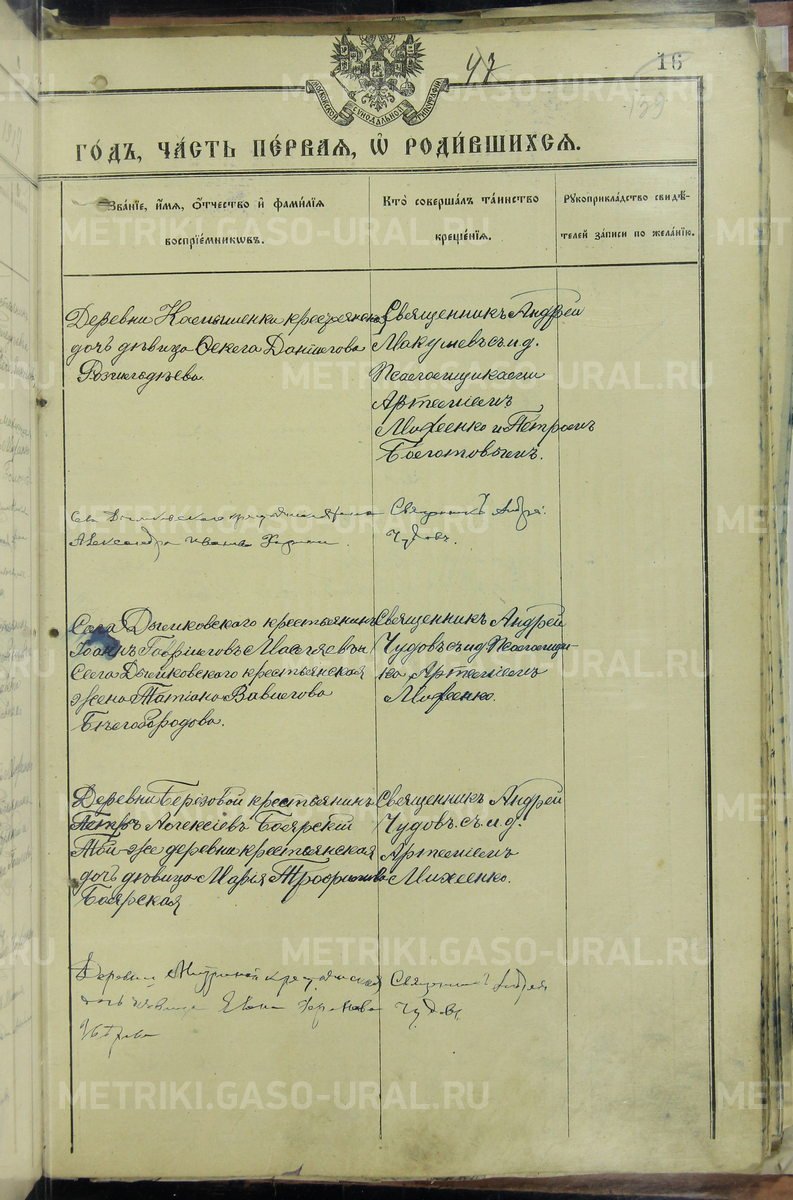 47
16
129
МОСКОВСКОЙ СѴНОДАЛЬНОЙ ТИПОГРАФІИ
ГОДЪ, ЧАСТЬ ПЕРВАЯ, Ѡ РОДИВШИХСЯ.
Званіе, имя, отчество и фамилія воспріемниковъ.
Кто совершалъ таинство крещенія.
Рукоприкладство свидѣтелей записи по желанію.
Деревни крестьянская
дочь дѣвица Данилова
Священникъ Андрей
съ и. д.
Псаломщиками
Артеміемъ
Михеенко и Петромъ
Богатовымъ.
Села
Александра
Священникъ Андрей
Чудовъ.
Села Дымковского крестьянинъ
Іоаннъ Гавріиловъ
Села Дымковского крестьянская
жена Татіана Вавилова
Бѣлобородова.
Священникъ Андрей
Чудовъ съ и д Псаломщи-
ка Артеміемъ
Михеенко.
Деревни Березовой крестьянинъ
Петръ Алексіевъ Боярскій
Той-же деревни крестьянская
дочь дѣвица Марія Трофимова
Боярская
Священникъ Андрей
Чудовъ. съ и. д.
Артеміемъ
Михеенко.
Деревни крестьянская
дочь дѣвица Елена
Священникъ Андрей
Чудовъ
METRIKI.GASO-URAL.RU